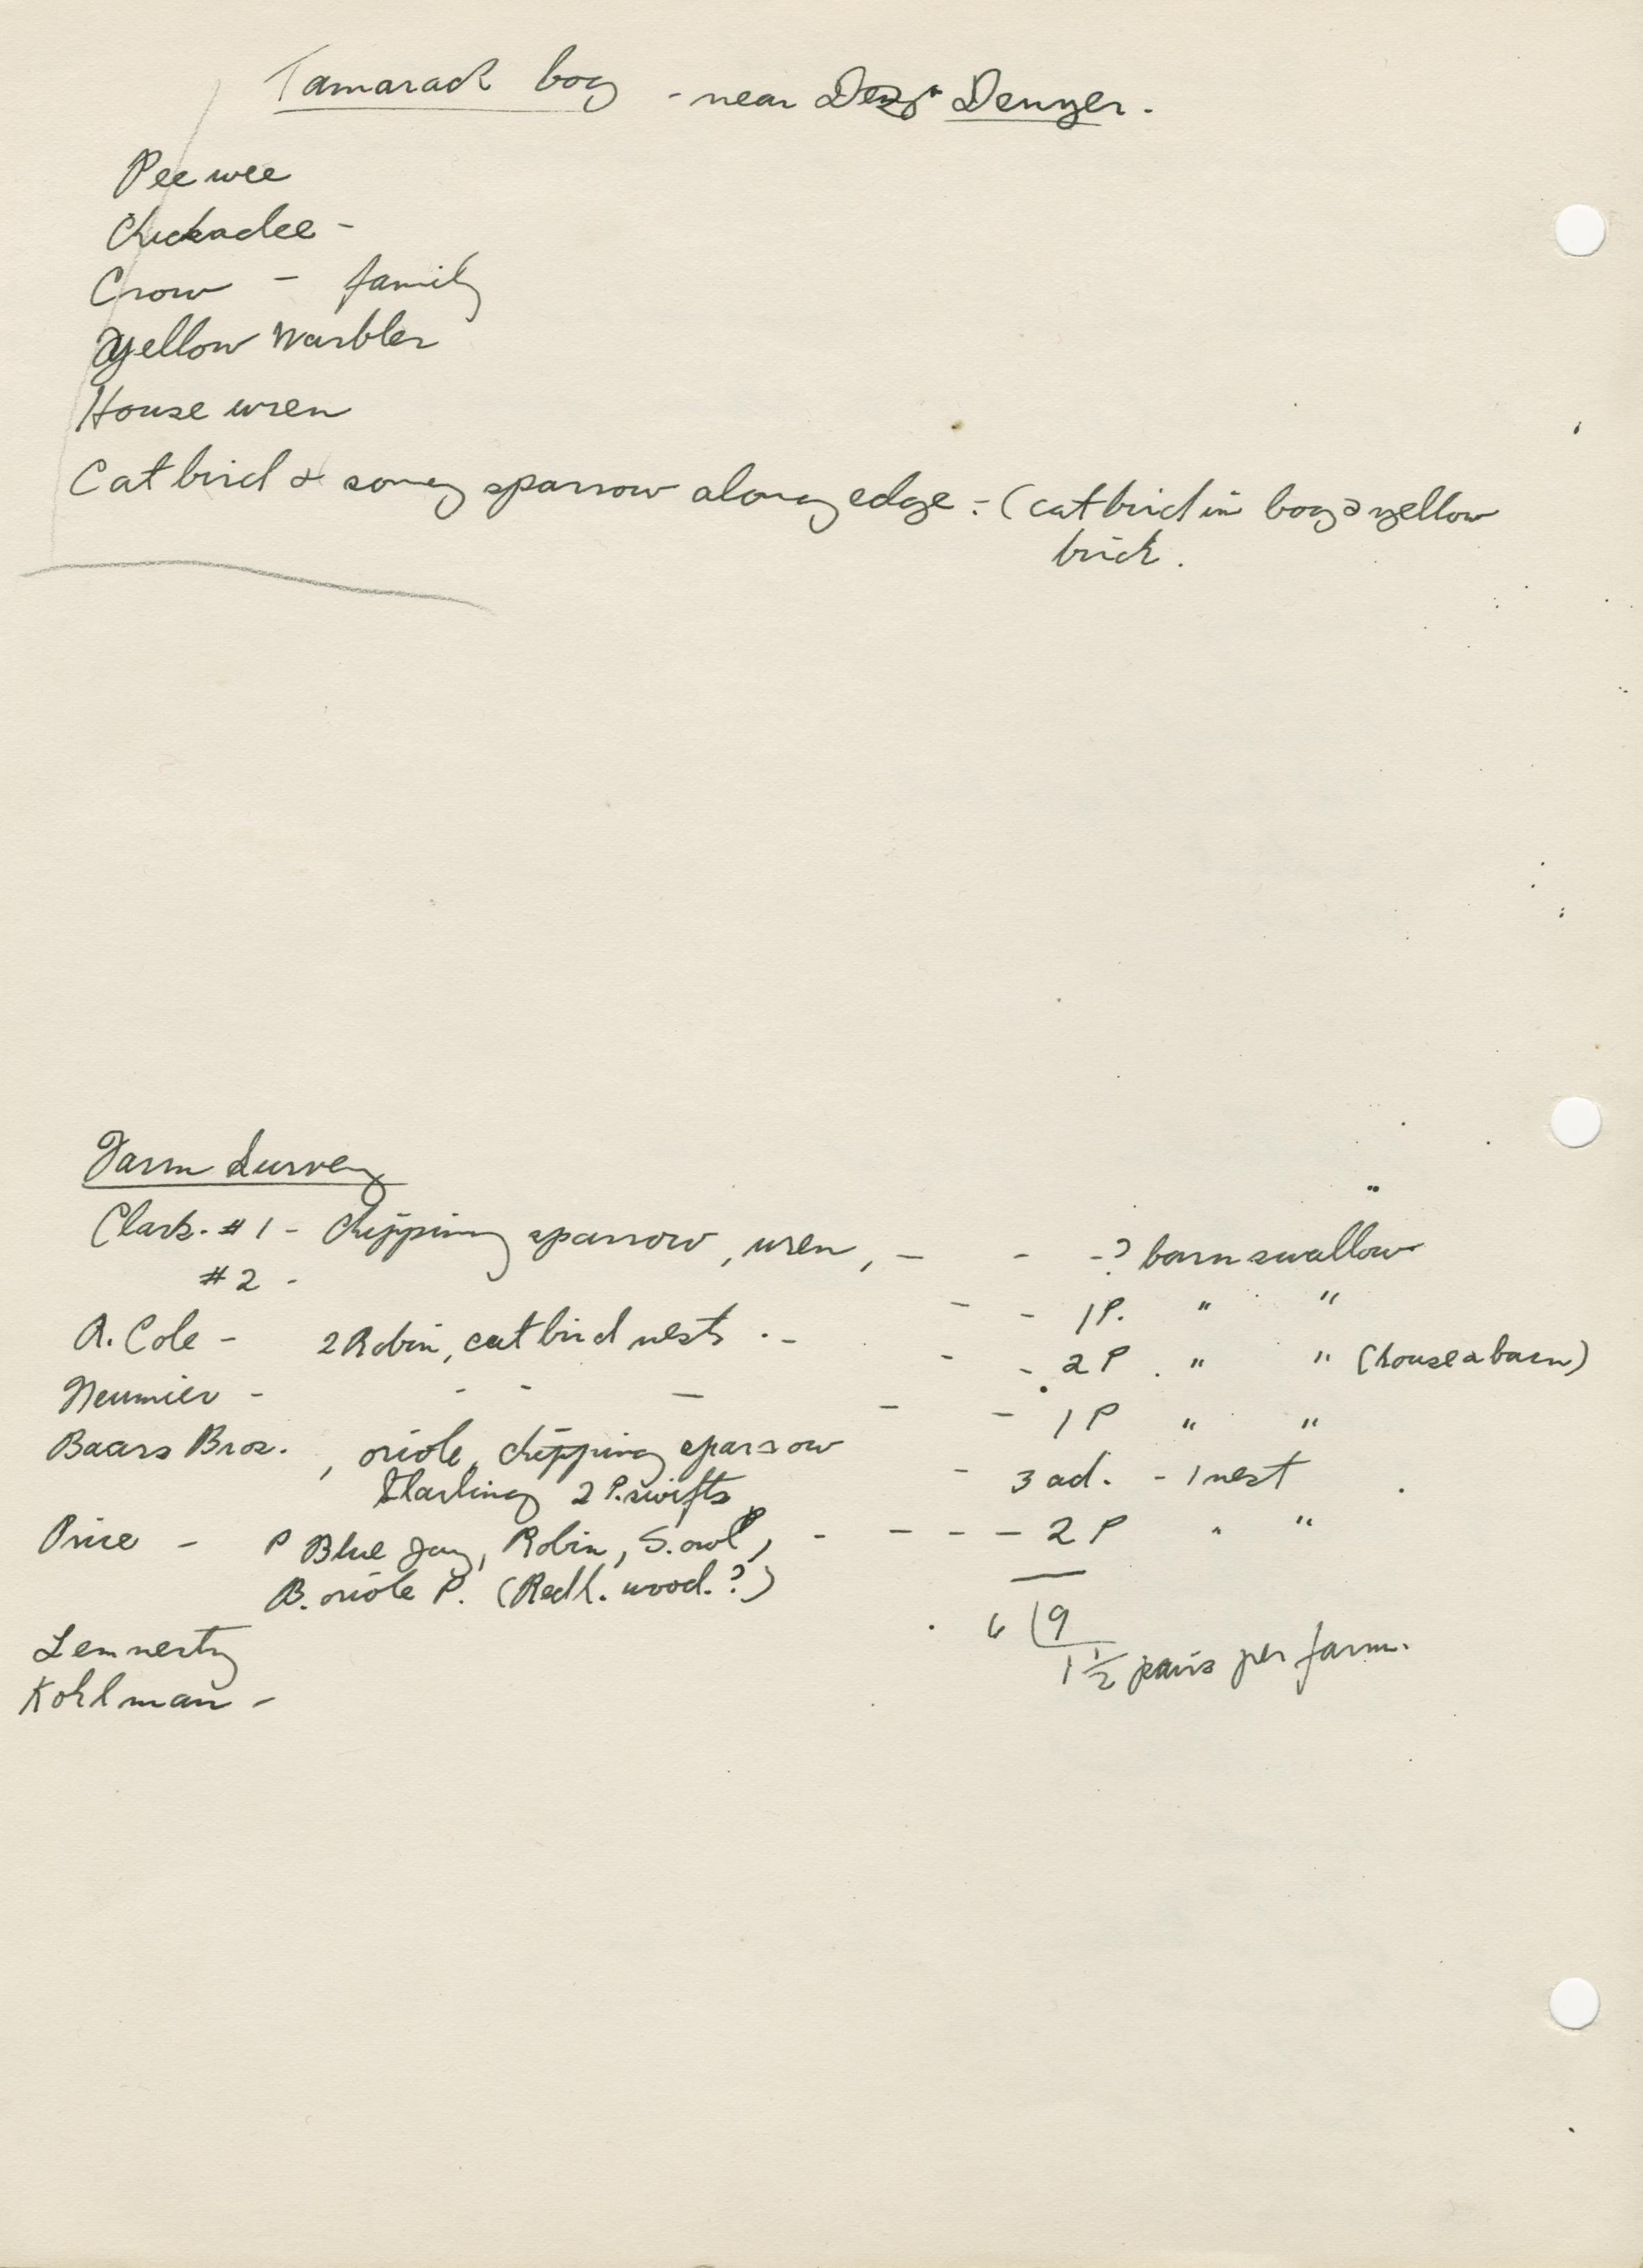 Tamarack bog - near Denzer.
Pee wee
Chickadee -
Crow - family
yellow warbler
House wren
Cat bird & song sparrow along edge - (cat bird in bog & yellow
brick.
Farm Survey
Clark. #1 - chipping sparrow, wren, - - -? barn swallow
#2 - - - 1P. " "
R. Cole - 2 Robin, cat bird nests . - - - 2 P . " " (house & barn)
Neumier - - - - - - 1 P " "
Baars Bros. , oriole, chipping sparrow - 3 ad. - 1 nest
Starling 2 P. swifts
Price - P Blue Jay, Robin, S. owl P, - - - - 2 P " "
B. oriole P. (Red h. wood. ?)
6 | 9
Lennertz 1 1/2 pairs per farm.
Kohlman -